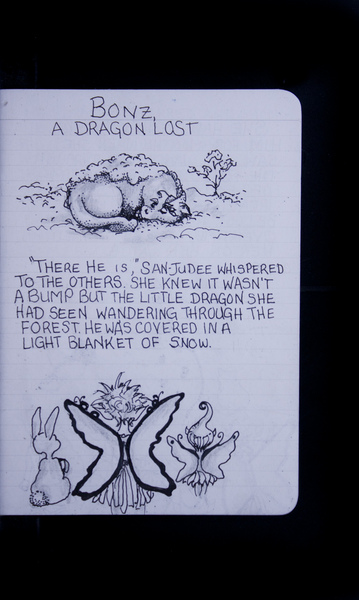 BONZ,
A DRAGON LOST
"THERE HE IS," SAN-JUDEE WHISPERED
TO THE OTHERS. SHE KNEW IT WASN'T
A BUMP BUT THE LITTLE DRAGON SHE
HAD SEEN WANDERING THROUGH THE
FOREST. HE WAS COVERED IN A
LIGHT BLANKET OF SNOW.